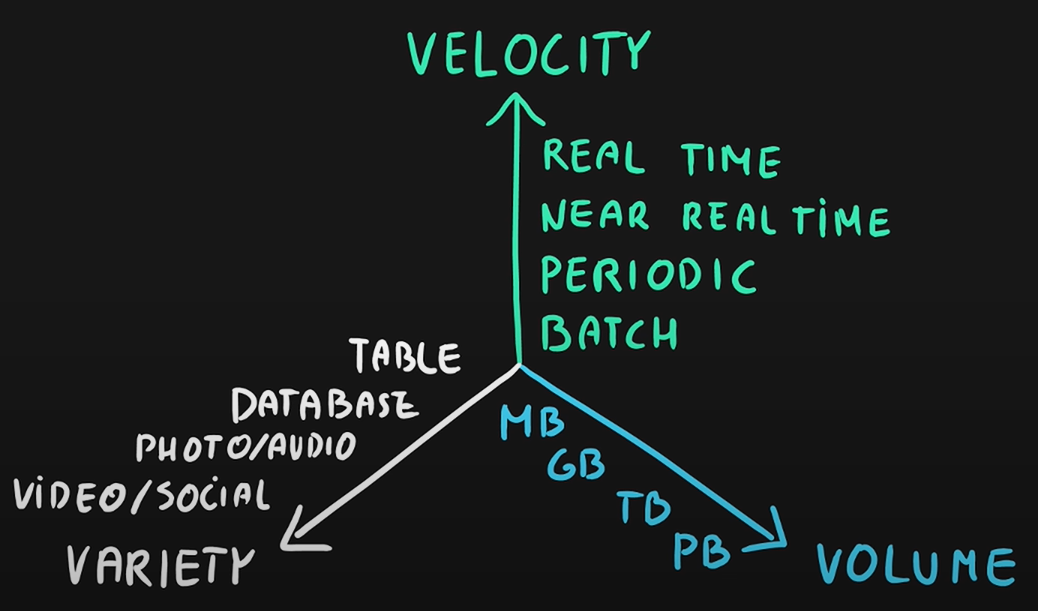 VELOCITY
REAL TIME
NEAR REALTIME
PERIODIC
BATCH
TABLE
DATABASE
PHOTO/AUDIO
VIDEO/SOCIAL
VARIETY
MB
GB
TB
PB
VOLUME